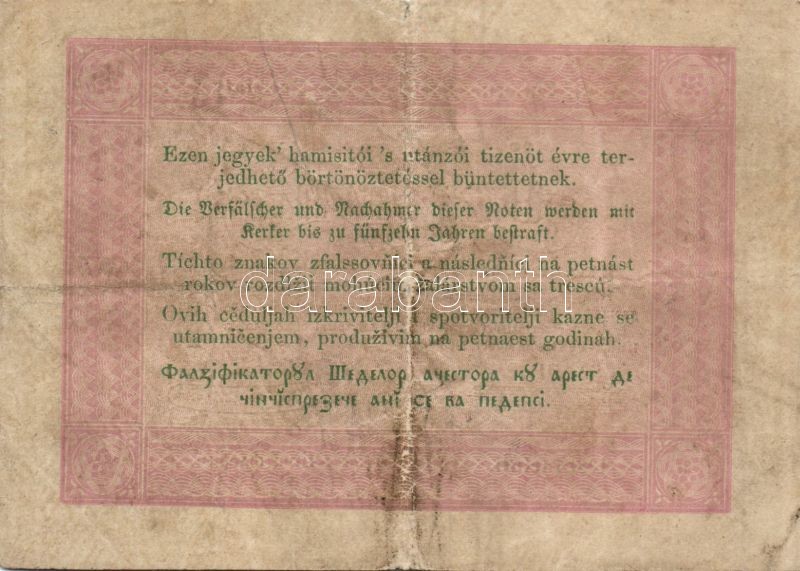 Ezen jegyek' hamisitói 's utánzói tizenöt évre ter-
jedhető börtönöztetéssel büntettetnek.
Die Verfälscher und Nachahmer dieser Noten werden mit
Kerker bis zu fünfzehn Jahren bestraft.
Tíchto znakov zfalssovňíci a následňíci na petnást
rokov rozdlžit sa trescú.
Ovih cěduljah izkrivitelji i spotvoritelji kazne se
utamničenjem, produživim na petnaest godinah.
Фалꙁіфікаторꙋл Шеделор ачестора кꙋ арест де
чінчĭспреꙁече анĭ се ва педепсі.
darabanth